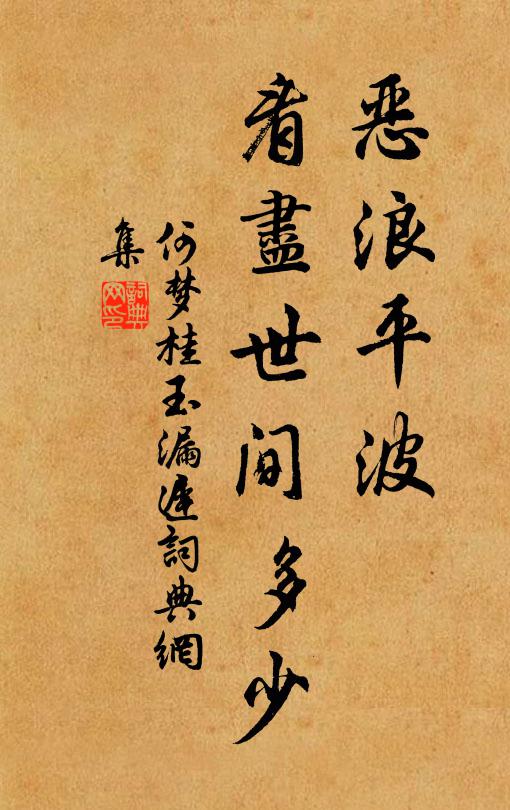 恶浪平波
看盡世间多少
何梦桂玉漏遲詞典網
集
詞典网印